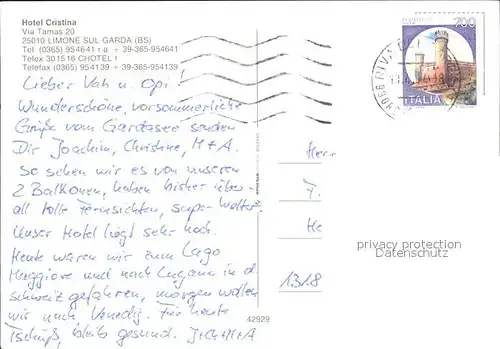 Hotel Cristina
Via Tamas 20
25010 LIMONE SUL GARDA (BS)
Tel (0365) 954641 r.a + 39-365-954641
Telex 301516 CHOTEL I
Telefax (0365) 954139 + 39-365-954139
Lieber Vah u. Opi!
Wunderschöne, vorsommerliche
Grüße vom Gardasee senden
Dir Joachim, Christine, M+A.
So sehen wir es von unseren
2 Balkonen, haben bisher über-
all tolle Fernsichten, super Wetter.
Unser Hotel liegt sehr hoch.
Heute waren wir zum Lago
Maggiore und nach Lugano in d.
Schweiz gefahren, morgen wollen
wir nach Venedig. Für heute
Tschüß, bleib gesund. J+CH+M+A
42929
700
ITALIA
Herr
F.
He
1318
privacy protection
Datenschutz